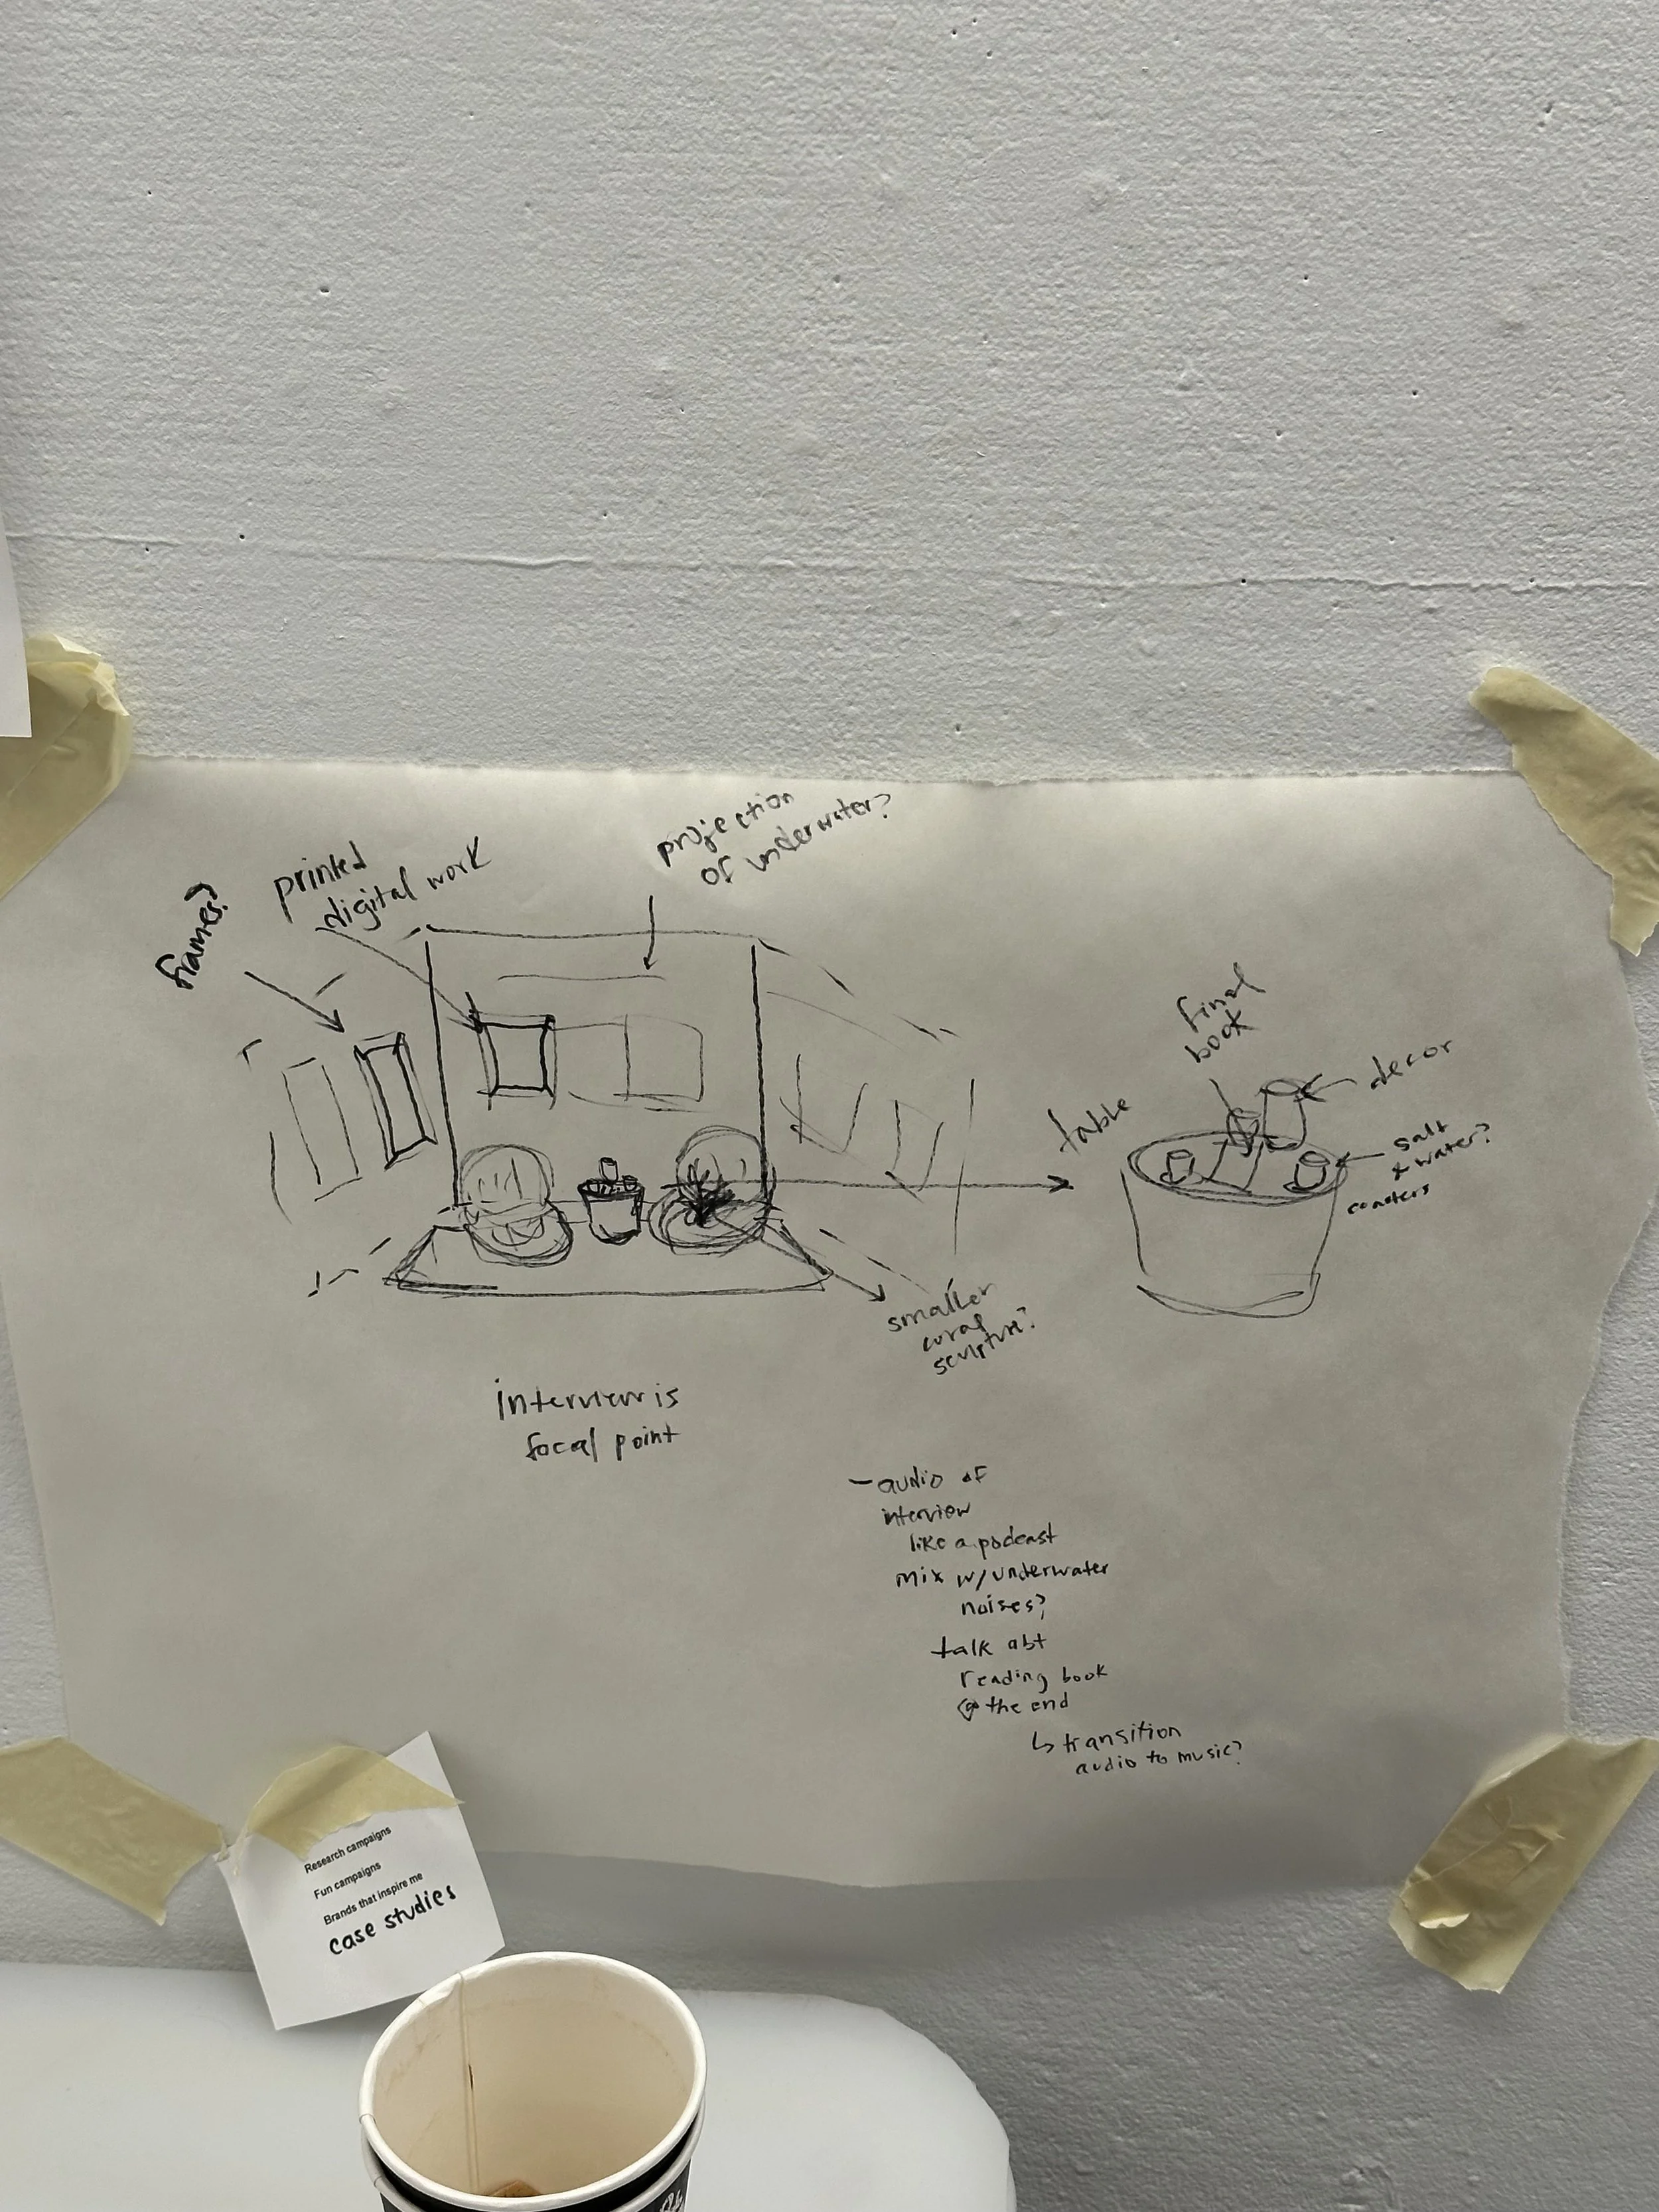 frames?
printed
digital work
projection
of underwater?
final
book
decor
table
salt
& water?
coasters
smaller
coral
sculpture?
interview is
focal point
- audio of
interview
like a podcast
mix w/underwater
noises?
talk abt
reading book
@ the end
↳ transition
audio to music?
Research campaigns
Fun campaigns
Brands that inspire me
case studies